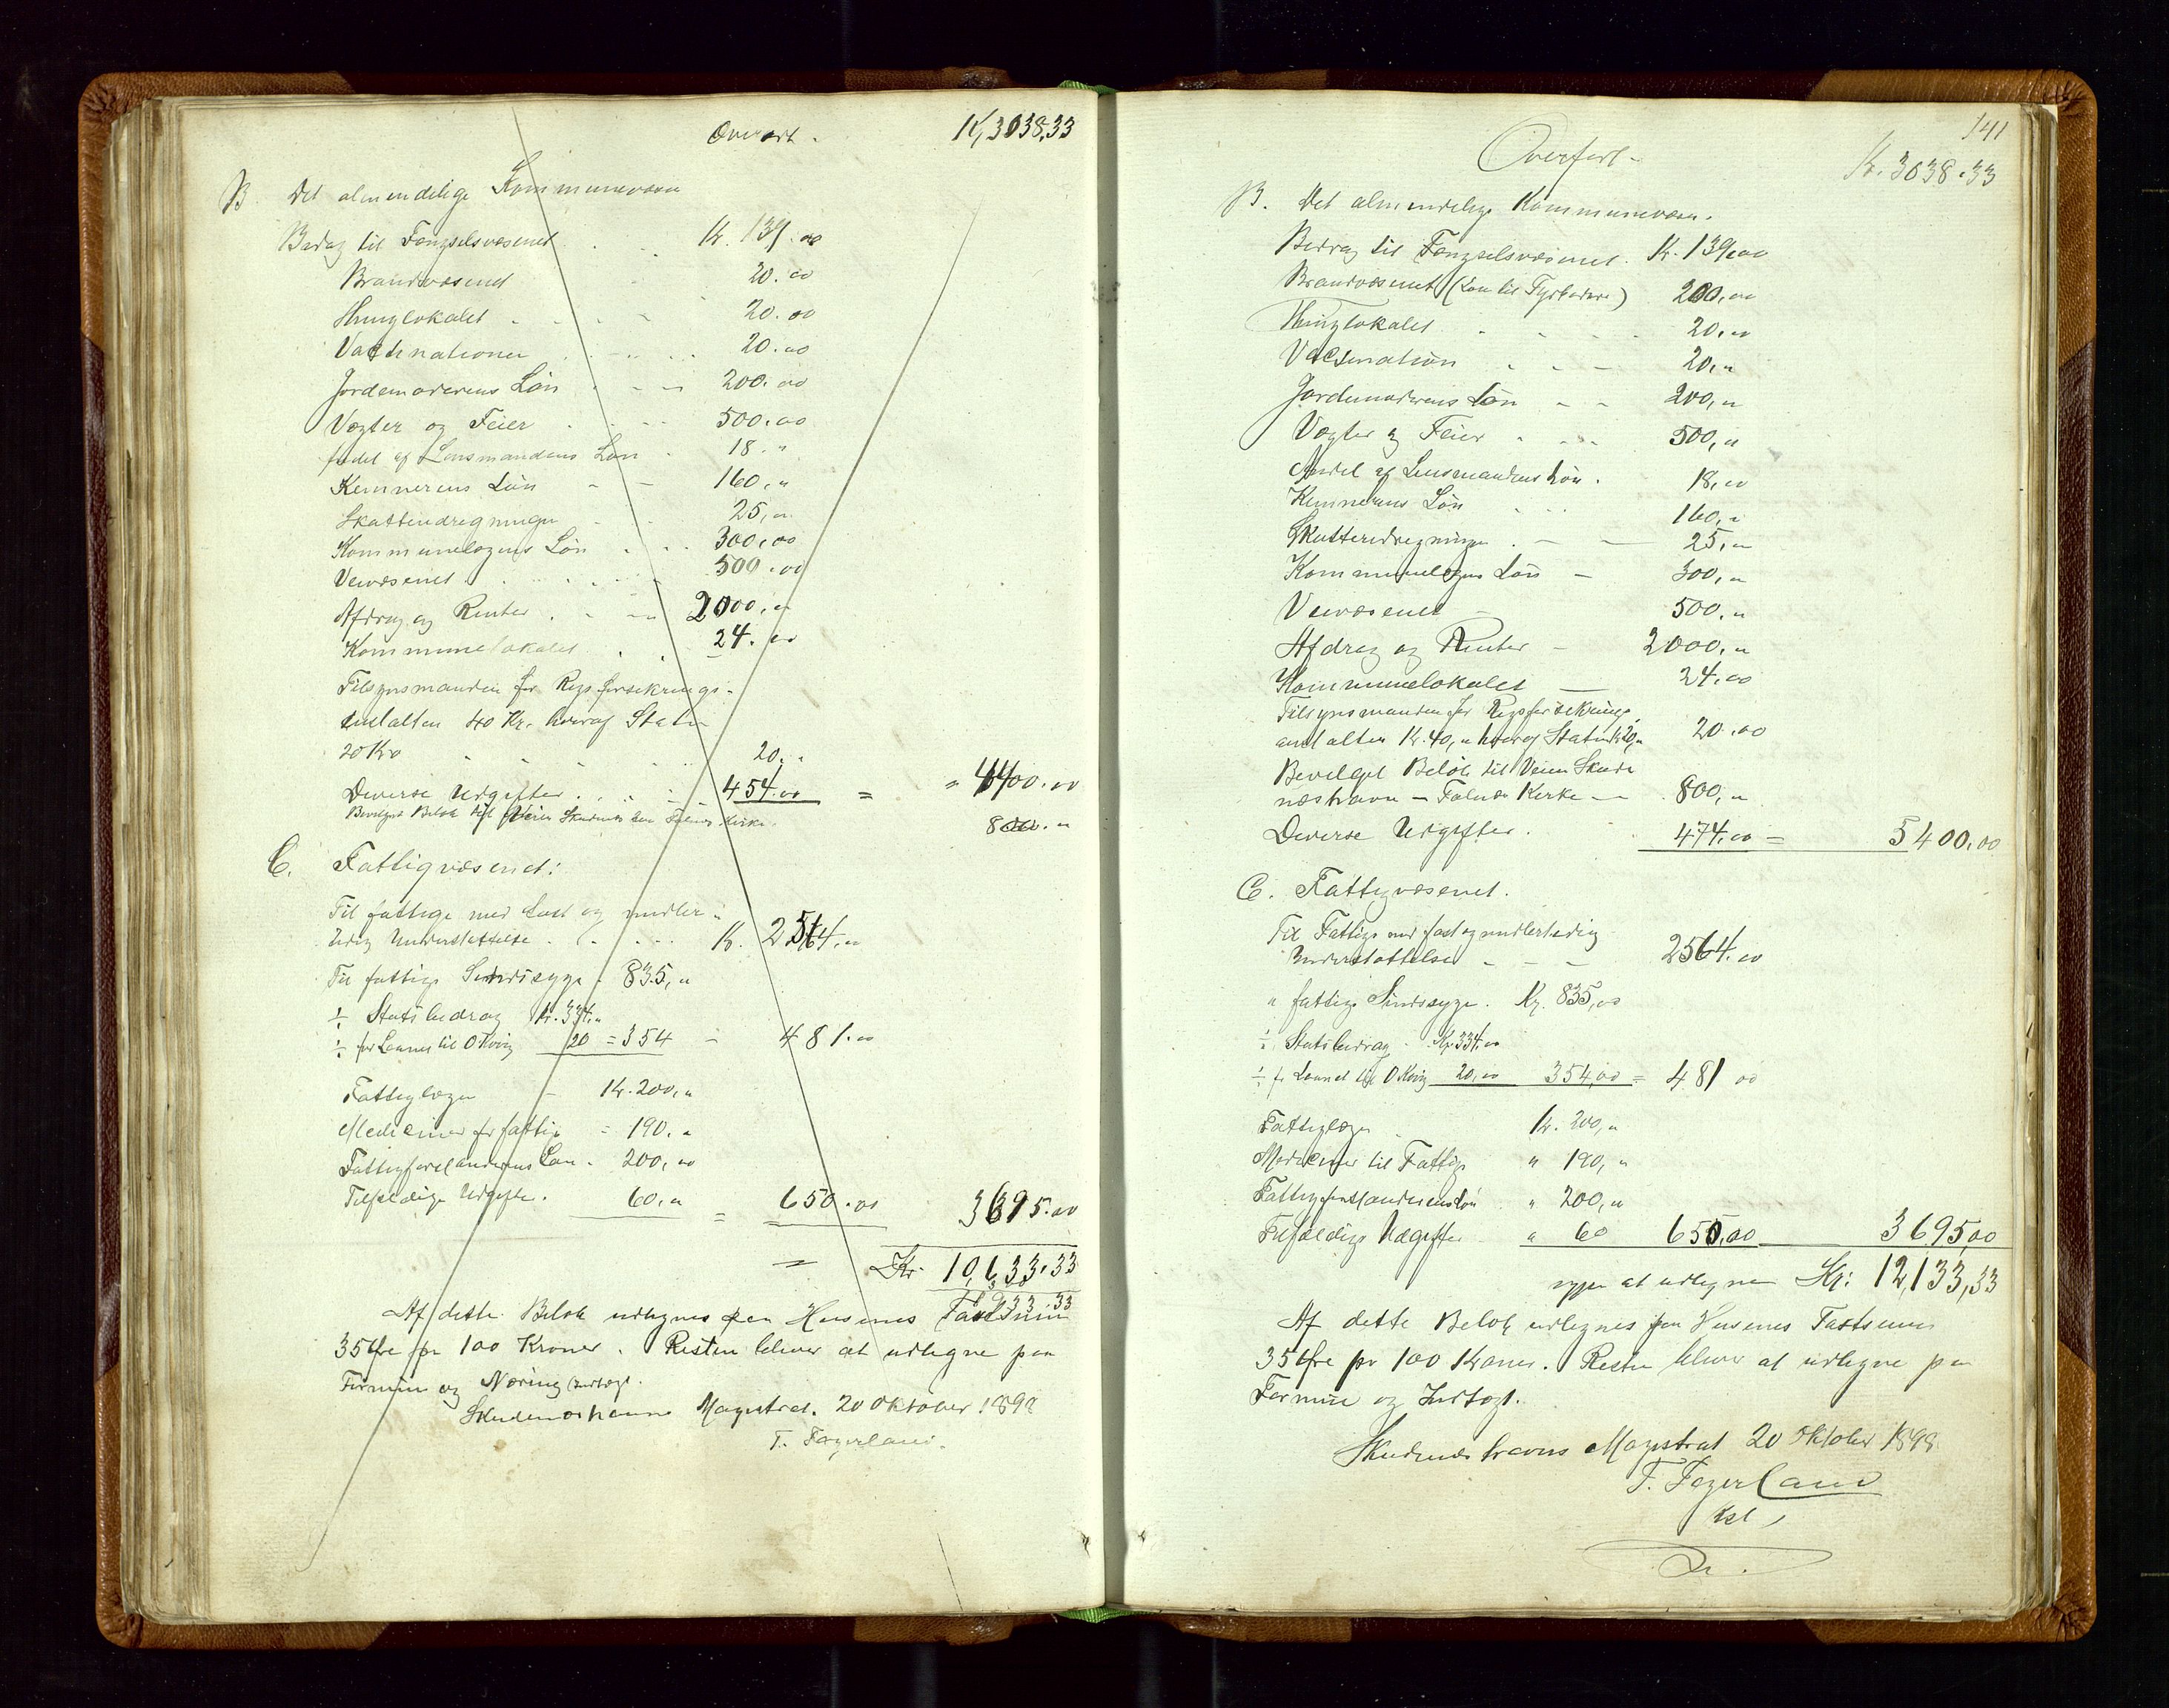 Overført. K, 3038,33
B. Det almendelige Kommunevæsen
Bidrag til Fængselsvæsenet . . Kr. 139.00
Brandvæsenet 20.00
Thinglokalet . . . . 20.00
Vactinationer . . . . 20.00
Jordemoderens Løn . . . 200.00
Vægter og Feier . . . 500.00
Andel af Lensmandens Løn . 18. "
Kemnerens Løn - - 160, "
Skatteindregningen 25, "
Kommunelægens Løn . . . 300,00
Veivæsenet . . . . 500.00
Afdrag og Renter . . . 2000, "
Kommunelokalet . . 24.00
Tilsynsmanden for Rigsforsikrings-
anstalten 40 Kr. hvoraf Staten
20 Kr 20. "
Diverse Udgifter . . . . 454.00 = = 4400.00
Bevilget Beløb til Veien Skudenæshavn Falnæs Kirke. 800. "
C. Fattigvæsenet:
Til fattige med fast og midler-
tidig Understøttelse . . . . K. 2564, "
Til fattige Sindssyge . 835, "
÷ Statsbidrag Kr. 334, "
÷ for Lønnet til O Kvig 20 = 354 - 481.00
Fattiglægen - Kr. 200, "
Mediciner for fattige = 190, "
Fattigforstanderens Løn . 200,00
Tilfældige Udgifter . 60, " = 650.00 3695.00
= Kr. 10,633.33
Af dette Beløb udlignes paa Husenes Taxtsum
35 Øre pr 100 Kroner. Resten bliver at udligne paa
Formue og Næring Indtægt.
Skudeneshavns Magistrat. 20 Oktober 1898
T. Fagerland.
141
Overført - Kr. 3038.33
B. Det almindelige Kommunevæsen.
Bidrag til Fængselsvæsenet. Kr. 139,00
Brandvæsenet (Løn til Fyrbødere) 200,00
Thinglokalet . . . . 20,00
Vaccination . . - 20, "
Jordemoderens Løn - - 200, "
Vægter og Feier . . . 500, "
Andel af Lensmandens Løn . 18,00
Kemnerens Løn . . . 160, "
Skatteindregningen . - - 25, "
Kommunelægens Løn - 300, "
Veivæsenet - 500, "
Afdrag og Renter - 2000, "
Kommunelokalet - 24.00
Tilsynsmanden for Rigsforsikrings
anstalten Kr. 40, " hvoraf Staten Kr 20, " 20.00
Bevilget Beløb til Veien Skude
næshavn - Falnæs Kirke - 800, "
Diverse Udgifter . 474.00 = 5400,00
C. Fattigvæsenet.
Til Fattige med fast og midlertidig
Understøttelse - - - 2564.00
" fattige Sindssyge. Kr. 835,00
÷ Statsbidrag . Kr 334.00
÷ for Lønnet til O Kvig 20,00 354,00 = 481 00
Fattiglægen . Kr. 200, "
Mediciner til Fattige " 190, "
Fattigforstanderens Løn " 200, "
Tilfældige Udgifter " 60 650,00 3695,00
at udligne Kr: 12,133,33
Af dette Beløb udlignes paa Husenes Taxtsum
35 Øre pr 100 Kroner. Resten bliver at udligne paa
Formue og Indtægt.
Skudeneshavns Magistrat 20 Oktober 1898
T. Fagerland